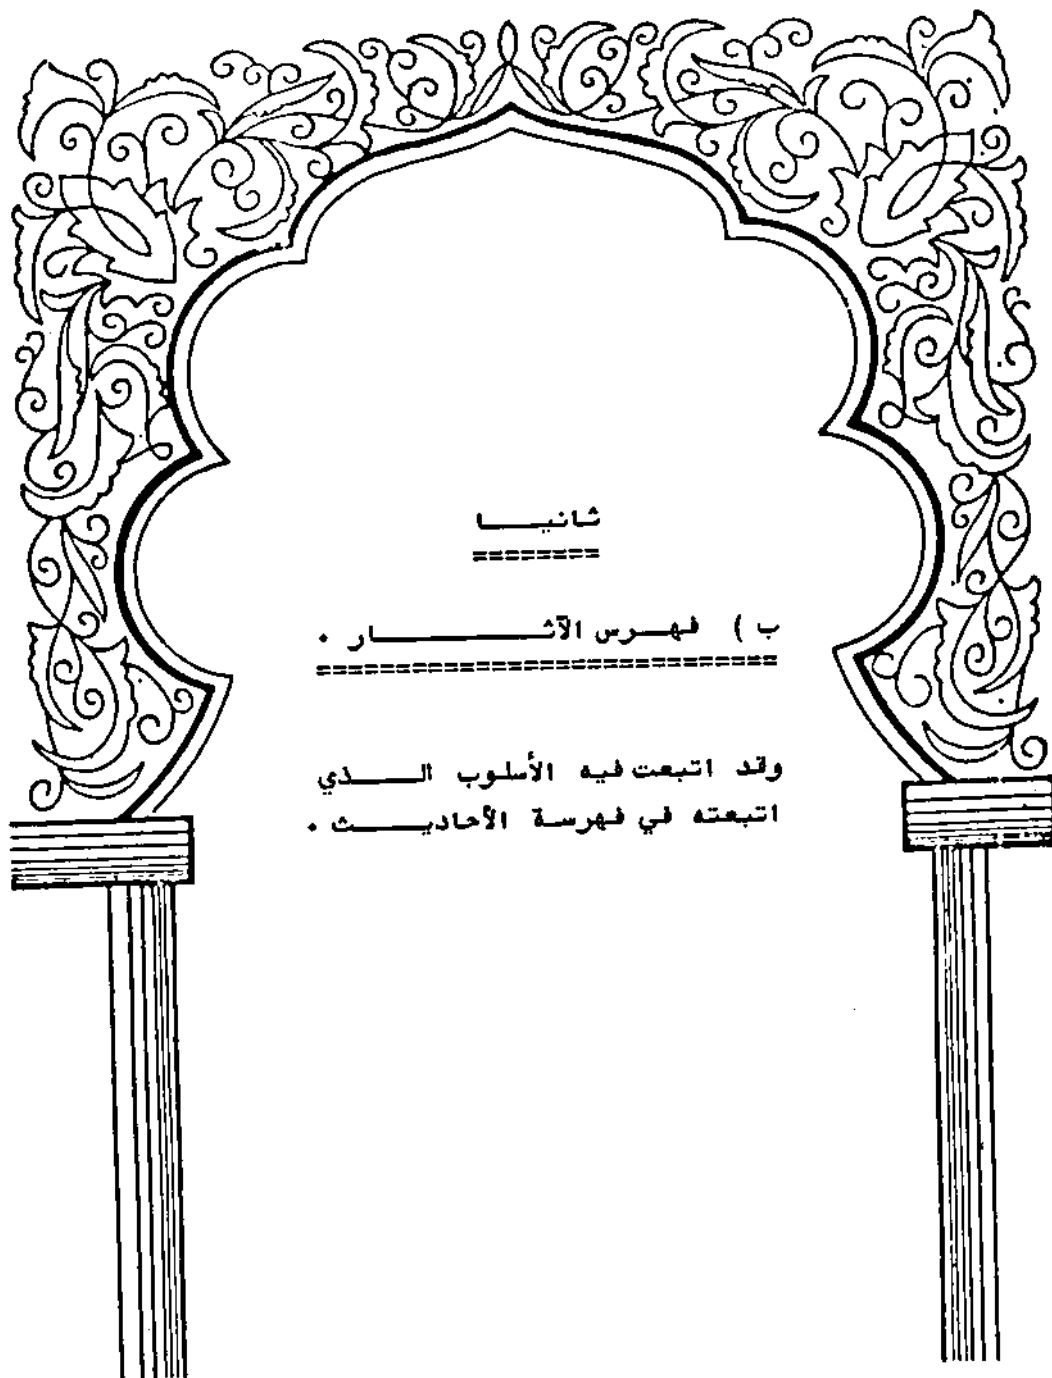 ثانيـــــا
========
ب ) فهـــرس الآثـــــــــــار .
=============================
وقد اتبعت فيه الأسلوب الـــــذي
اتبعته في فهرسة الأحاديـــــث .